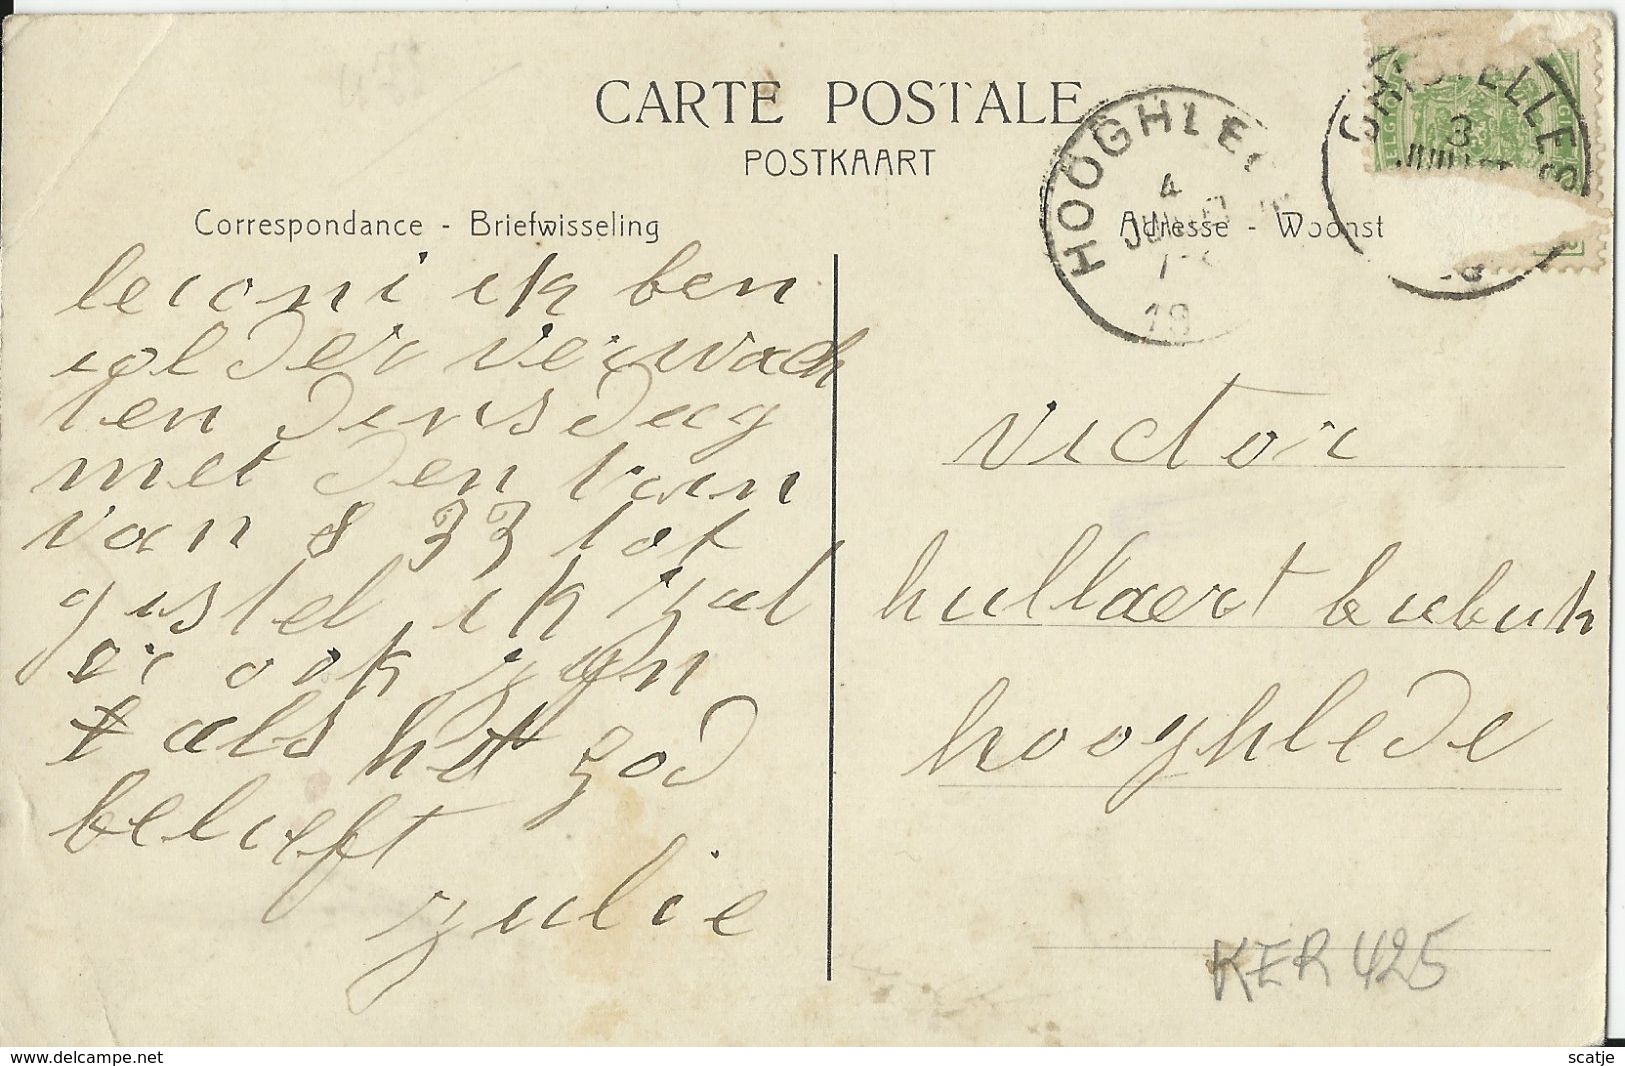 CARTE POSTALE
POSTKAART
Correspondance - Briefwisseling
Adresse - Woonst
HOOGHLE
4
JUIL
18
GHISTELLES
3
JUILLET
leconi ik ben
iol der verwach
ten dinsdag
met den train
van 8 33 tot
gistel ik zal
er ook zyn
als het god
belieft
zulie
victor
hullaert
hooghlede
KER 425
www.delcampe.net
scatje